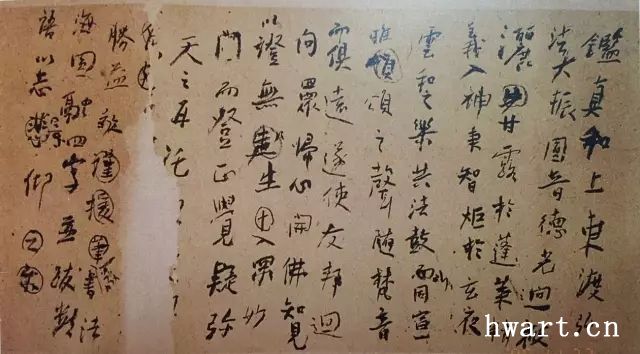 鑑真和上東渡弘
法大振圓音德光迥被
灑甘露於蓬萊
義入神秉智炬於玄夜
雲和之樂共法鼓而同宣
雅頌之聲隨梵音
而俱遠遂使友邦迴
向眾歸心開佛知見
以證無生入眾妙
門而登正覺疑弥
天之再
勝益謹援筆書法
海圓融四字並綴數
語以志仰
hwart.cn